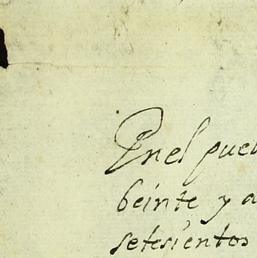 Enel pueb
beinte y a
setesientos